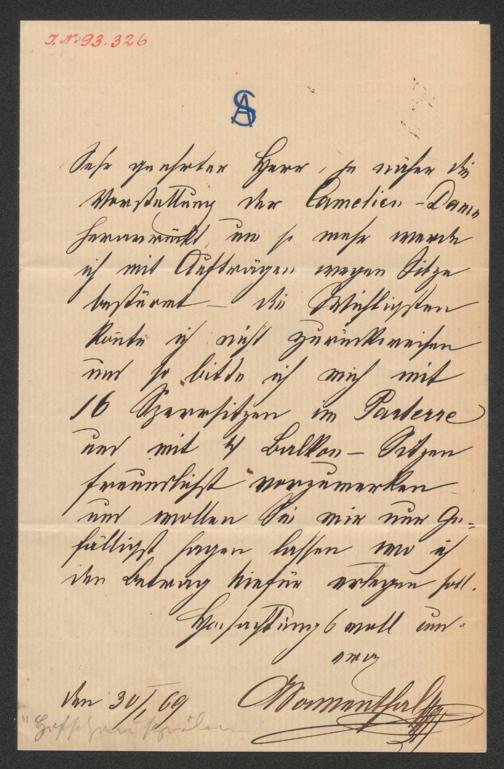 J. N. 93.326
SA
Sehr geehrter Herr, je näher die
Vorstellung der Camelien-Dame
heranrückt, um so mehr werde
ich mit Aufträgen wegen Sitze
bestürmt – die Wichtigsten
konnte ich nicht zurückweisen
und so bitte ich mich mit
16 Sperrsitzen im Parterre
und mit 4 Balkon-Sitzen
freundlichst vorzumerken
und wollen Sie mir nur Ge=
fälligst sagen lassen wo ich
den Betrag hiefür erlegen soll.
Hochachtungsvoll
den 30/I 69